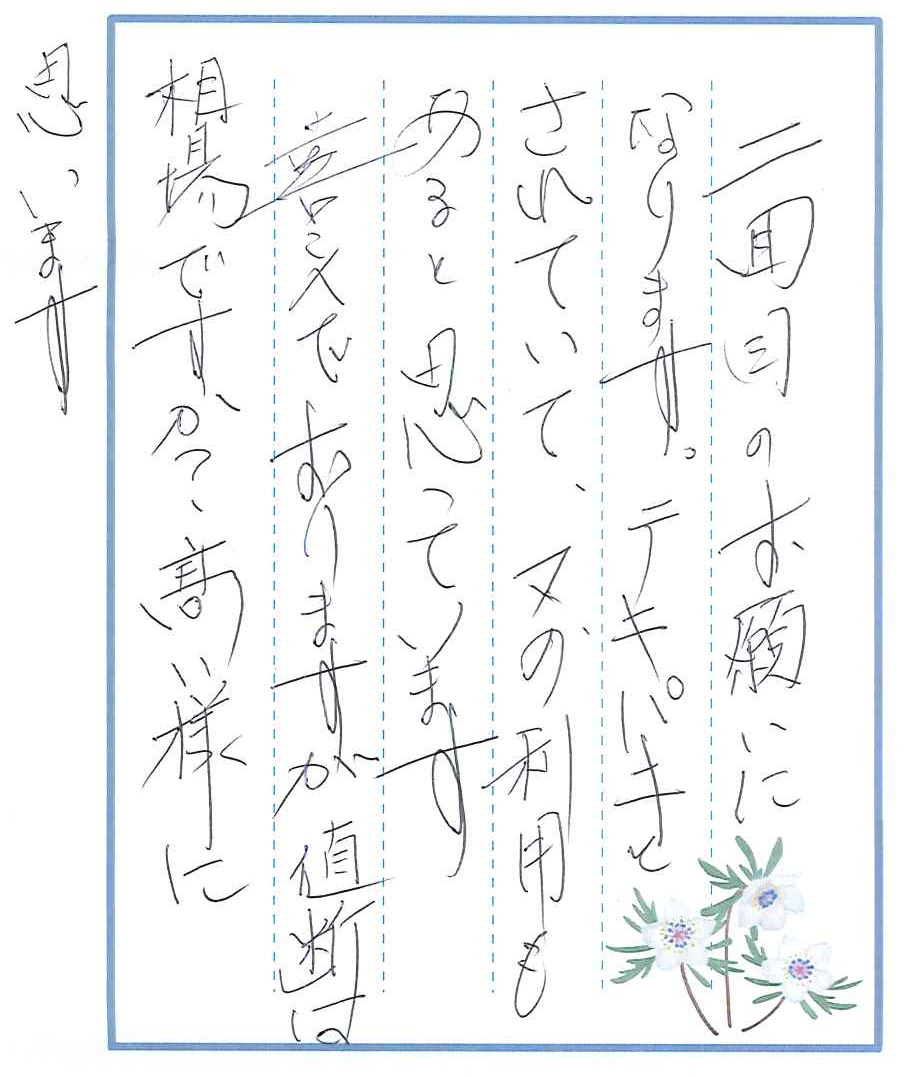 二回目のお願いに
なります。テキパキと
されていて、又の利用も
あると思っています
喜んでおりますが値断は
相場ですか、高い様に
思います